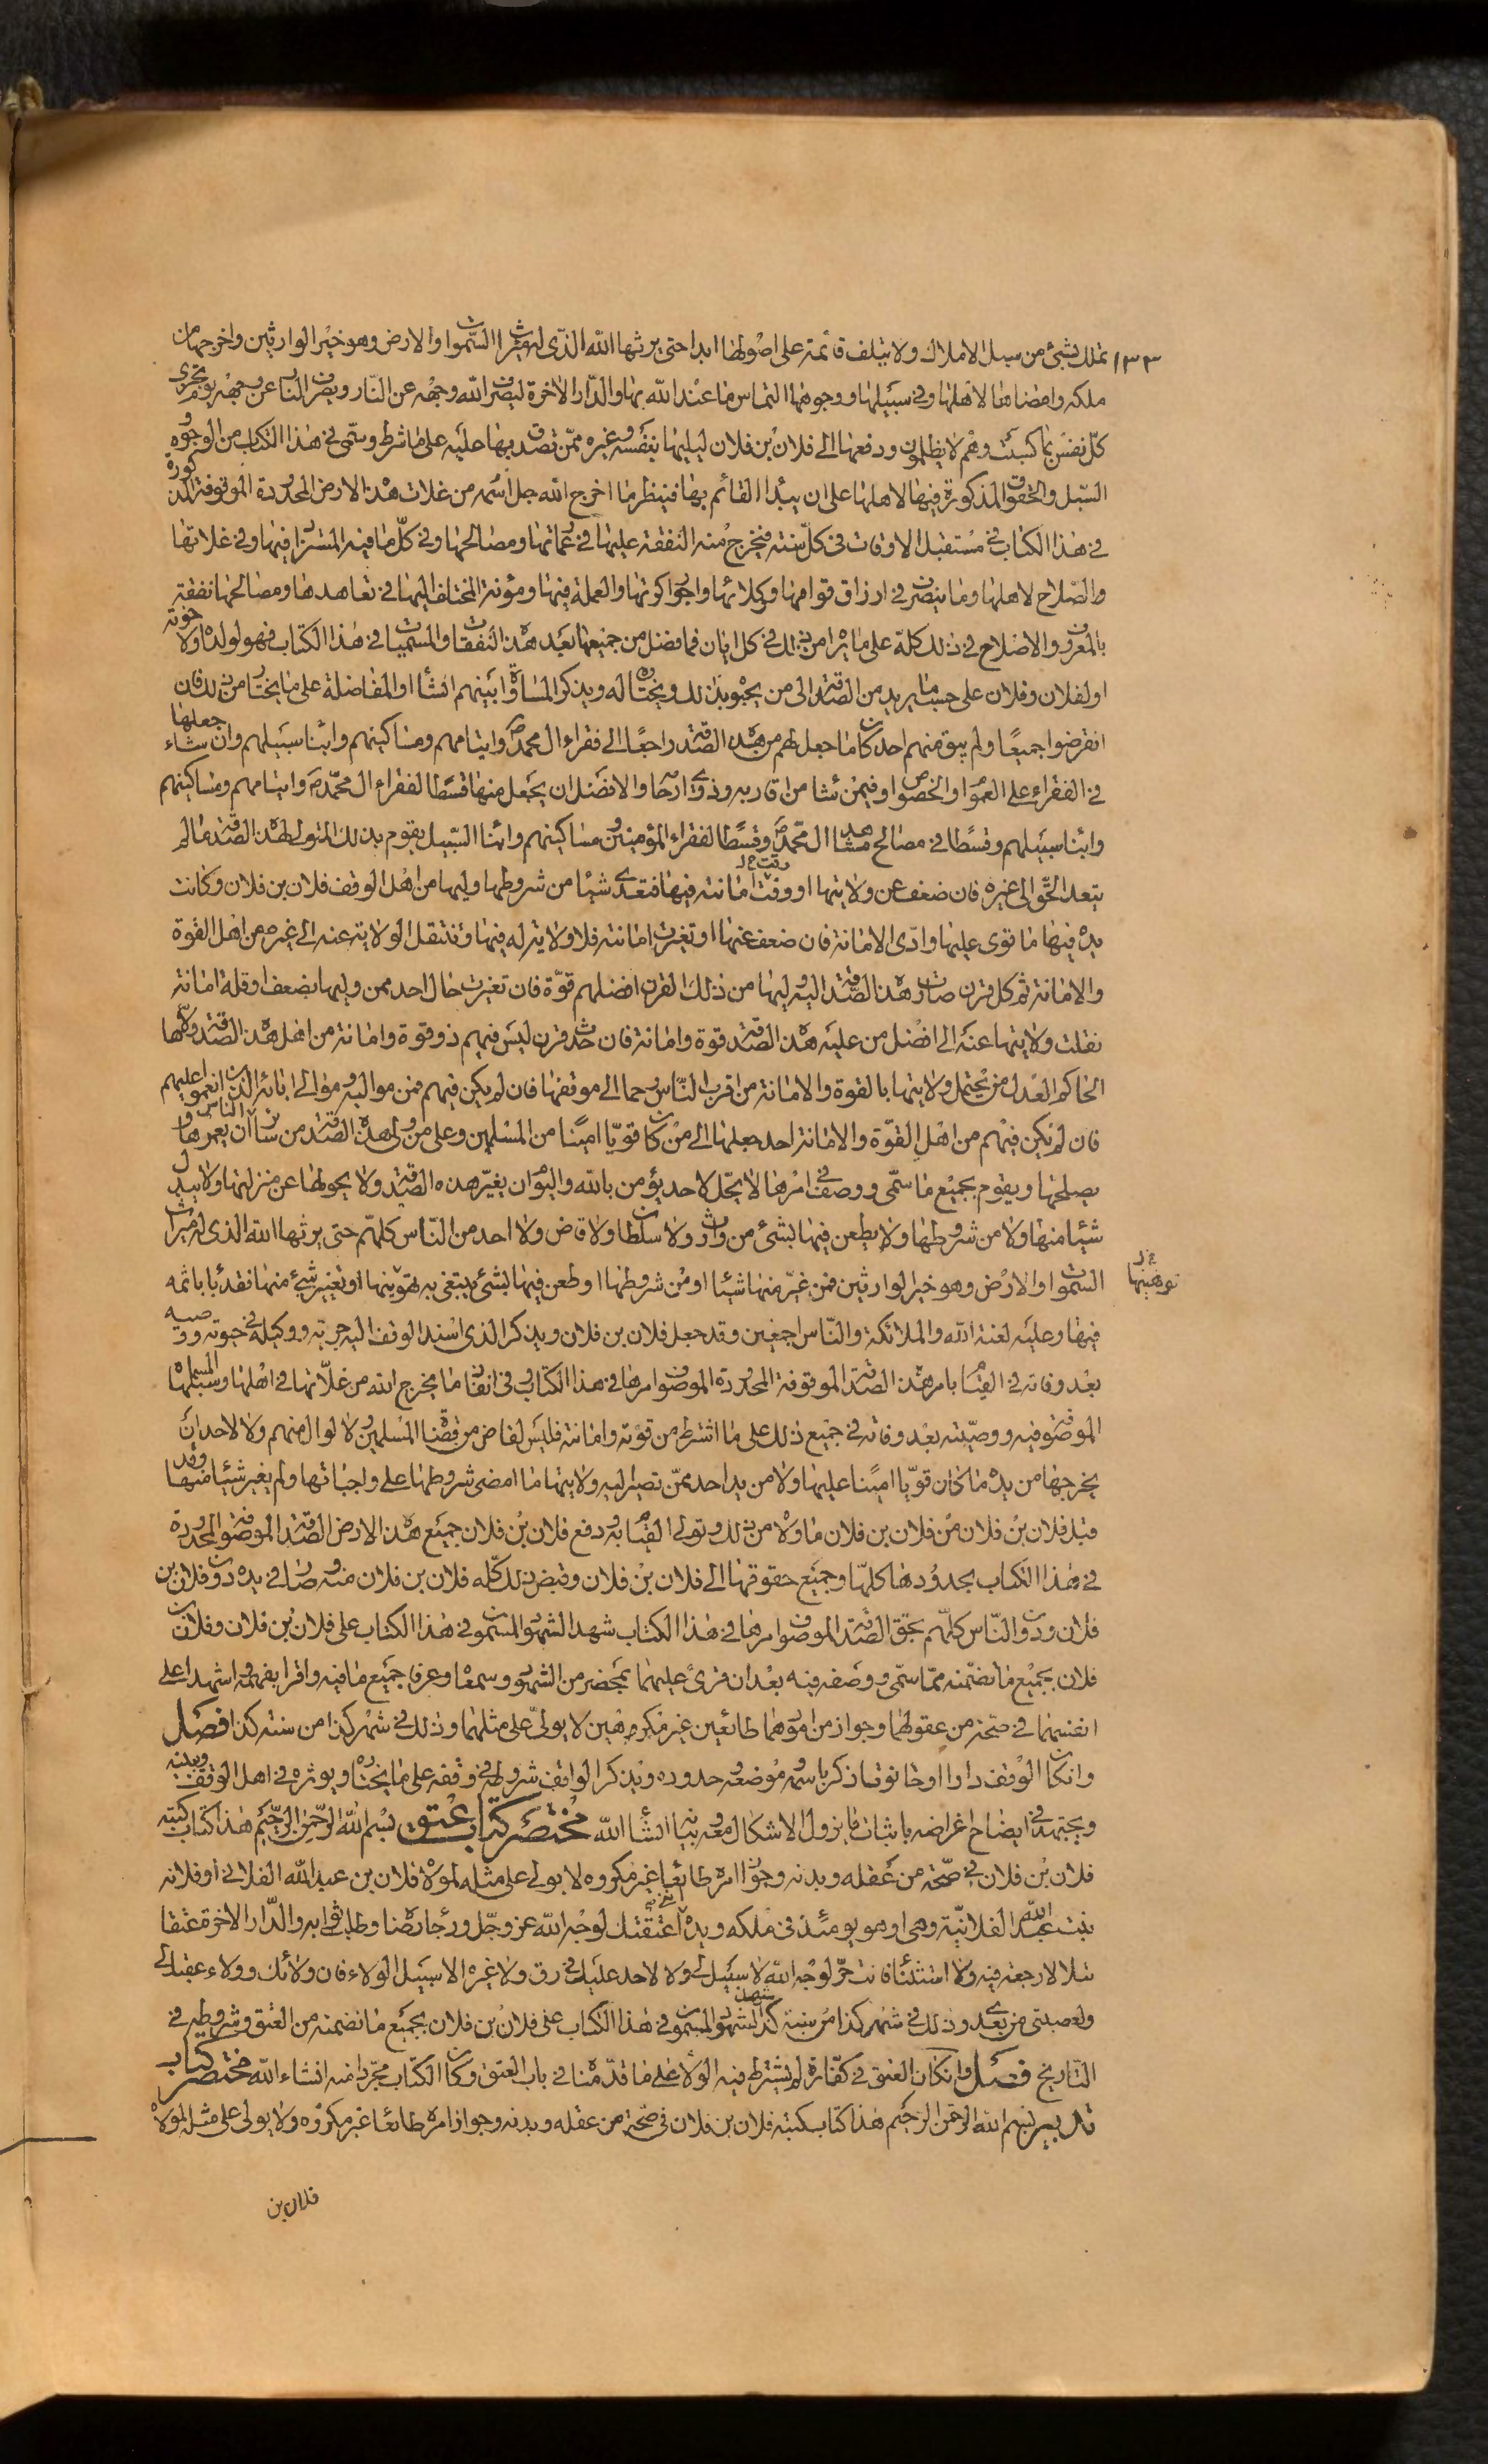 ١٣٣ تملك بشئ من سبل الاملاك ولا يتلف قائمة على اصولها ابدا حتى يرثها الله الذى له ميراث السموات والارض وهو خير الوارثين واخرجها من
ملكه وامضاها لاهلها وفى سبيلها ووجوهها التماس ما عند الله بها والدار الاخرة ليصرف الله وجهه عن النار ويصرف النار عن وجهه يوم تجزى
كل نفس بما كسبت وهم لا يظلمون ودفعها الى فلان بن فلان ليليها بنفسه وغيره ممن تصدق بها عليه على ما شرط وسمى فى هذا الكتاب من الوجوه
السبل والحقوق المذكورة فيها لاهلها على ان يبدا القائم بها فينظر ما اخرج الله جل اسمه من غلات هذه الارض المحدودة الموقوفة المذكورة
فى هذا الكتاب فى مستقبل الاوقات فى كل سنة فيخرج منه النفقة عليها فى عمارتها ومصالحها وفى كل ما فيه المستزاد فيها وفى غلاتها
والصلاح لاهلها وما ينصرف فى ارزاق قوامها ووكلائها واجور اكرتها والعملة فيها ومؤنة المختلف اليها فى تعاهدها ومصالحها نفقة
بالمعروف والاصلاح فى ذلك كله على ما يراه من ذلك فى كل ابان فما فضل من جميعها بعد هذه النفقات والمسميات فى هذا الكتاب فهو لولده ولاخوته
او لفلان وفلان على حسب ما يريد من الصدقة الى من يحبوه بذلك ويختاره له ويذكر المساواة بينهم انشاء او المفاضلة على ما يختاره من ذلك فان
انقرضوا جميعا ولم يبق منهم احد كان ما جعل لهم من هذه الصدقة راجعا الى فقراء ال محمد ص وايتامهم ومساكينهم وابناء سبيلهم وان شاء جعلها
فى الفقراء على العموم او الخصوص او فيمن شاء من اقاربه وذوى ارحامه والافضل ان يجعل منها قسطا لفقراء ال محمد ص وايتامهم ومساكينهم
وابناء سبيلهم وقسطا فى مصالح مشاهد ال محمد ص وقسطا لفقراء المؤمنين ومساكينهم وابناء السبيل يقوم بذلك المتولى لهذه الصدقة ما لم
يتعد الحق الى غيره فان ضعف عن ولايتها او وقت امانته فيها فتعدى شيئا من شروطها وليها من اهل الوقف فلان بن فلان وكانت
يده فيها ما قوى عليها وادى الامانة فان ضعف عنها او تغيرت امانته فلا ولاية له فيها وتنتقل الولاية عنه الى غيره من اهل القوة
والامانة ثم كل قرن صارت هذه الصدقة اليه وليها من ذلك القرن افضلهم قوة فان تغيرت حال احد ممن وليها بضعف او قلة امانة
نقلت ولايتها عنه الى افضل من عليه هذه الصدقة قوة وامانة فان حدث قرن ليس فيهم ذو قوة وامانة من اهل هذه الصدقة ولاها
الحاكم العدل من يحتمل ولايتها بالقوة والامانة من اقرب الناس رحما الى موقفها فان لم يكن فيهم فمن مواليه وموالى ابائه الذين انعموا عليهم
فان لم يكن فيهم من اهل القوة والامانة احد جعلها الى من كان قويا امينا من المسلمين وعلى من ولى هذه الصدقة من سائر الناس ان يعمرها و
يصلحها ويقوم بجميع ما سمى ووصف فى امرها لا يحل لاحد يؤمن بالله واليوم ان يغير هذه الصدقة ولا يحولها عن منزلتها ولا يبدل
شيئا منها ولا من شروطها ولا يطعن فيها بشئ من وارث ولا سلطان ولا قاض ولا احد من الناس كلهم حتى يرثها الله الذى له ميراث
السموات والارض وهو خير الوارثين فمن غير منها شيئا او من شروطها او طعن فيها بشئ يبتغى به تهوينها او تغيير شئ منها فقد باء باثمه
توهينها خ ل
فيها وعليه لعنة الله والملائكة والناس اجمعين وقد جعل فلان بن فلان ويذكر الذى اسند الوقف اليه جريته ووكيله فى حيوته ووصيه
بعد وفاته فى القيام بامر هذه الصدقة الموقوفة المحدودة الموصوف امرها فى هذا الكتاب وفى انفاق ما يخرج الله من غلاتها فى اهلها وسبلها المسماة
الموصوفة فيه ووصيته بعد وفاته فى جميع ذلك على ما اشترط من قوته وامانته فليس لقاض من قضاة المسلمين ولا لوال منهم ولا لاحد ان
يخرجها من يده ما كان قويا امينا عليها ولا من يد احد ممن تصير اليه ولايتها ما امضى شروطها على واجباتها ولم يغير شيئا منها وقد
قبل فلان بن فلان من فلان بن فلان ما ولاه من ذلك وتولى القيام به ودفع فلان بن فلان جميع هذه الارض الصدقة الموصوفة المحدودة
فى هذا الكتاب بحدودها كلها وجميع حقوقها الى فلان بن فلان وقبض ذلك كله فلان بن فلان منه وصار فى يده دون فلان بن
فلان ودون الناس كلهم بحق الصدقة الموصوف امرها فى هذا الكتاب شهد الشهود المسمون فى هذا الكتاب على فلان بن فلان وفلان بن
فلان بجميع ما تضمنه مما سمى ووصف فيه بعد ان قرئ عليهما بمحضر من الشهود وسمعا وعرفا جميع ما فيه واقرا بفهمه واشهدا على
انفسهما فى صحة من عقولهما وجواز من امورهما طائعين غير مكرهين لا يولى على مثلهما وذلك فى شهر كذا من سنة كذا فصل
وان كان الوقف دارا او حانوتا ذكر باسمه وموضعه وحدوده ويذكر الواقف شروطه فى وقفه على ما يختاره ويؤثره فى اهل الوقف ويبينه
ويجتهد فى ايضاح اغراضه باثبات ما يزول الاشكال معه وبيانه انشاء الله مختصر كتاب عتق بسم الله الرحمن الرحيم هذا كتاب كتبه
فلان بن فلان فى صحة من عقله وبدنه وجواز امره طائعا غير مكروه لا يولى على مثله لمولاه فلان بن عبد الله الفلانى او فلانه
بنت عبد الله الفلانية وهى او هو يومئذ فى ملكه ويده اعتقتك لوجه الله عز وجل ورجاء رضاه وطلب ثوابه والدار الاخرة عتقا
بتلا لا رجعة فيه ولا استثناء فانت حر لوجه الله لا سبيل لى ولا لاحد عليك فى رق ولا غيره الا سبيل الولاء فان ولائك وولاء عقبك لى
ولعصبتى من بعدى وذلك فى شهر كذا من سنة كذا شهد الشهود المسمون فى هذا الكتاب على فلان بن فلان بجميع ما تضمنه من العتق وشروطه فى
التاريخ فصل وان كان العتق فى كفارة لم يشترط فيه الولاء على ما قدمناه فى باب العتق وكان الكتاب مجردا منه انشاء الله مختصر كتاب
تدبير بسم الله الرحمن الرحيم هذا كتاب كتبه فلان بن فلان فى صحة من عقله وبدنه وجواز امره طائعا غير مكروه ولا يولى على مثله لمولاه
فلان بن